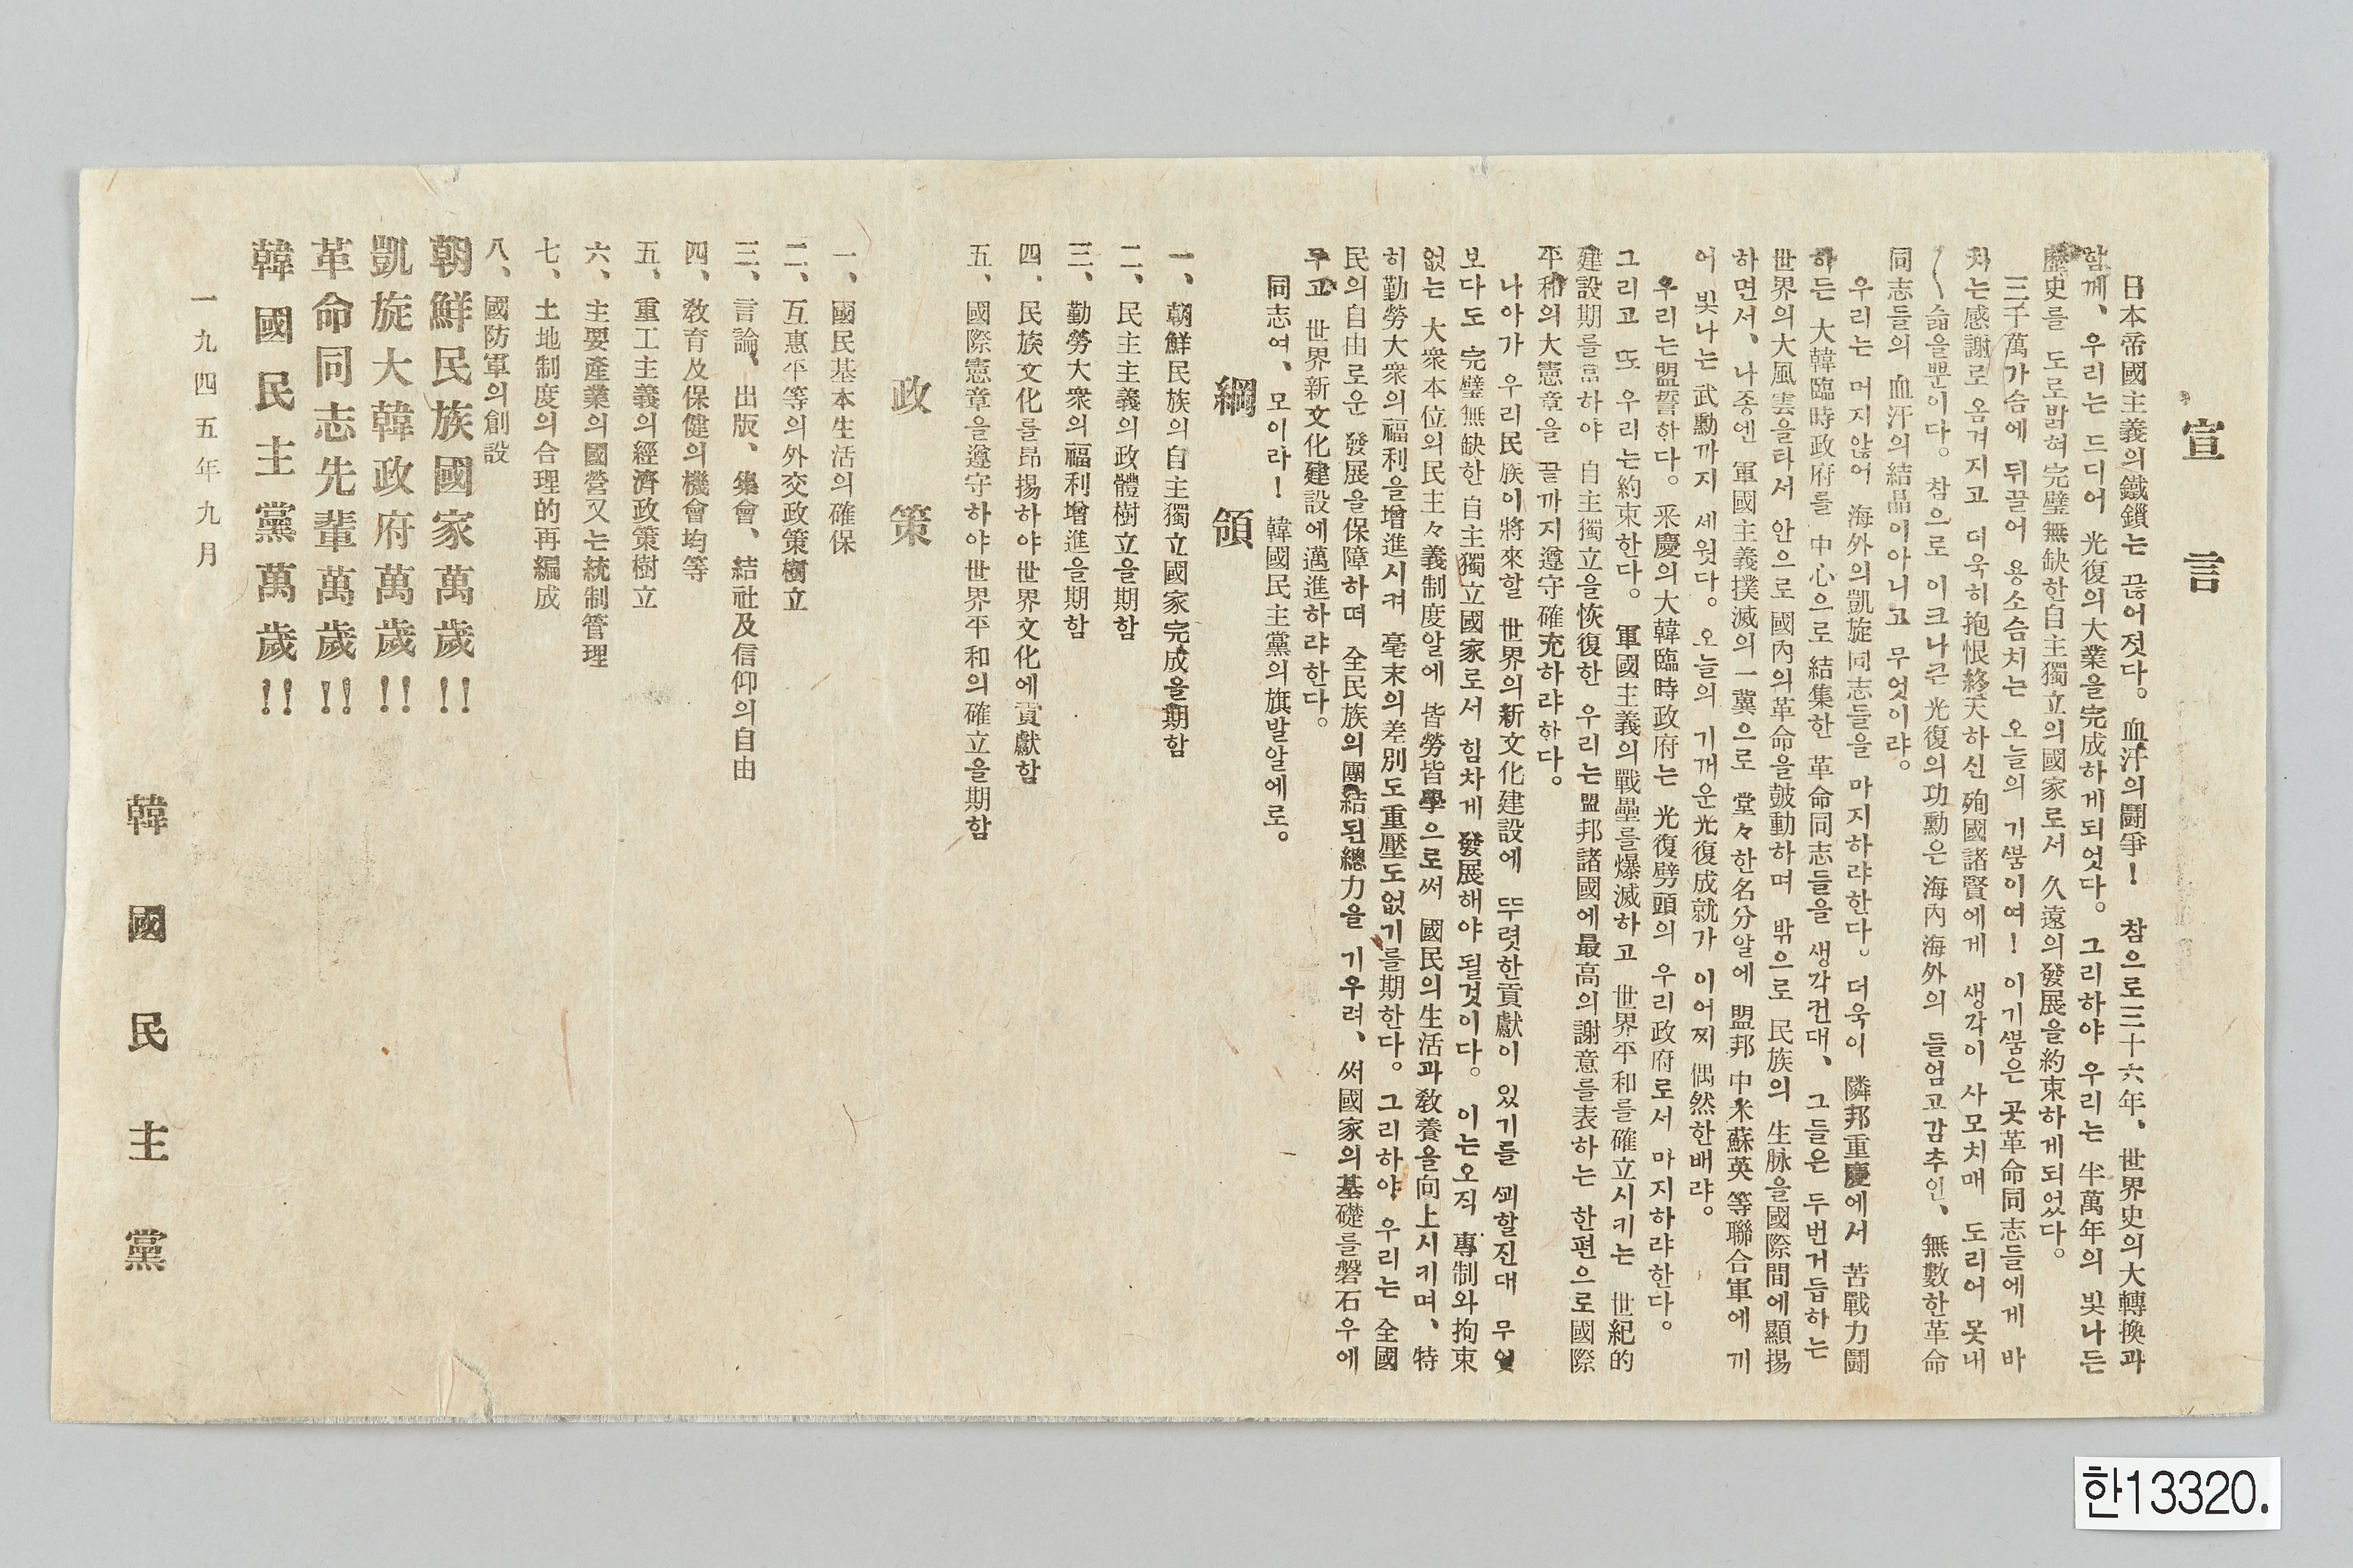 宣言
日本帝國主義의鐵鎖는 끊어젓다。血汗의鬪爭! 참으로三十六年、世界史의大轉換과
함께、우리는 드디어 光復의大業을完成하게되엇다。그리하야 우리는 半萬年의 빛나든
歷史를 도로밝혀完璧無缺한自主獨立의國家로서 久遠의發展을約束하게되었다。
三千萬가슴에 뒤끌어 용소슴치는 오늘의 기쁨이여! 이기쁨은 곳革命同志들에게 바
치는感謝로옴겨지고 더욱히抱恨終天하신殉國諸賢에게 생각이 사모치매 도리어 못내
〱슯을뿐이다。참으로 이크나큰光復의功勳은海內海外의 들엄고감추인、無數한革命
同志들의 血汗의結晶이아니고 무엇이랴。
우리는 머지않어 海外의凱旋同志들을 마지하랴한다。더욱이 隣邦重慶에서 苦戰力鬪
하든 大韓臨時政府를 中心으로結集한 革命同志들을 생각컨대、그들은 두번거듭하는
世界의大風雲을타서 안으로國內의革命을鼓動하며 밖으로 民族의 生脉을國際間에顯揚
하면서、나종엔 軍國主義撲滅의一翼으로 堂々한名分알에 盟邦 中米蘇英 等聯合軍에 끼
어 빛나는武勳까지 세웟다。오늘의 기꺼운光復成就가 이어찌 偶然한배랴。
우리는盟誓한다。釆慶의大韓臨時政府는 光復劈頭의 우리政府로서 마지하랴한다。
그리고 또 우리는約束한다。軍國主義의戰壘를爆滅하고 世界平和를確立시키는 世紀的
建設期를當하야 自主獨立을恢復한 우리는盟邦諸國에最高의謝意를表하는 한편으로國際
平和의大憲章을 끝까지遵守確充하랴한다。
나아가 우리民族이將來할 世界의新文化建設에 뚜렷한貢獻이 있기를 꾀할진대 무엇
보다도 完璧無缺한自主獨立國家로서 힘차게 發展해야 될것이다。이는오직 專制와拘束
없는 大衆本位의民主々義制度알에 皆勞皆學으로써 國民의生活과敎養을向上시키며、特
히勤勞大衆의福利을增進시켜 毫末의差別도重壓도없기를期한다。그리하야 우리는 全國
民의自由로운 發展을保障하며 全民族의團結된總力을 기우려、써國家의基礎를磐石우에
두고 世界新文化建設에邁進하랴한다。
同志여、모이라! 韓國民主黨의旗발알에로。
綱領
一、朝鮮民族의自主獨立國家完成을期함
二、民主主義의政體樹立을期함
三、勤勞大衆의福利增進을期함
四、民族文化를昻揚하야世界文化에貢獻함
五、國際憲章을遵守하야世界平和의確立을期함
政策
一、國民基本生活의確保
二、互惠平等의外交政策樹立
三、言論、出版、集會、結社及信仰의自由
四、敎育及保健의機會均等
五、重工主義의經濟政策樹立
六、主要產業의國營又는統制管理
七、土地制度의合理的再編成
八、國防軍의創設
朝鮮民族國家萬歲!!
凱旋大韓政府萬歲!!
革命同志先輩萬歲!!
韓國民主黨萬歲!!
一九四五年九月
韓國民主黨
한13320.